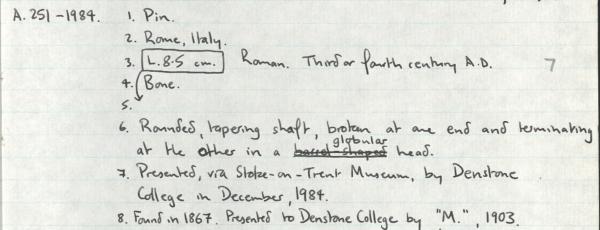 A. 251-1984. 1. Pin.
2. Rome, Italy.
3. L. 8.5 cm. Roman. Third or fourth century A.D. 7
4. Bone.
5.
6. Rounded, tapering shaft, broken at one end and terminating
globular
at the other in a barrel shaped head.
7. Presented, via Stoke-on-Trent Museum, by Denstone
College in December, 1984.
8. Found in 1867. Presented to Denstone College by "M.", 1903.